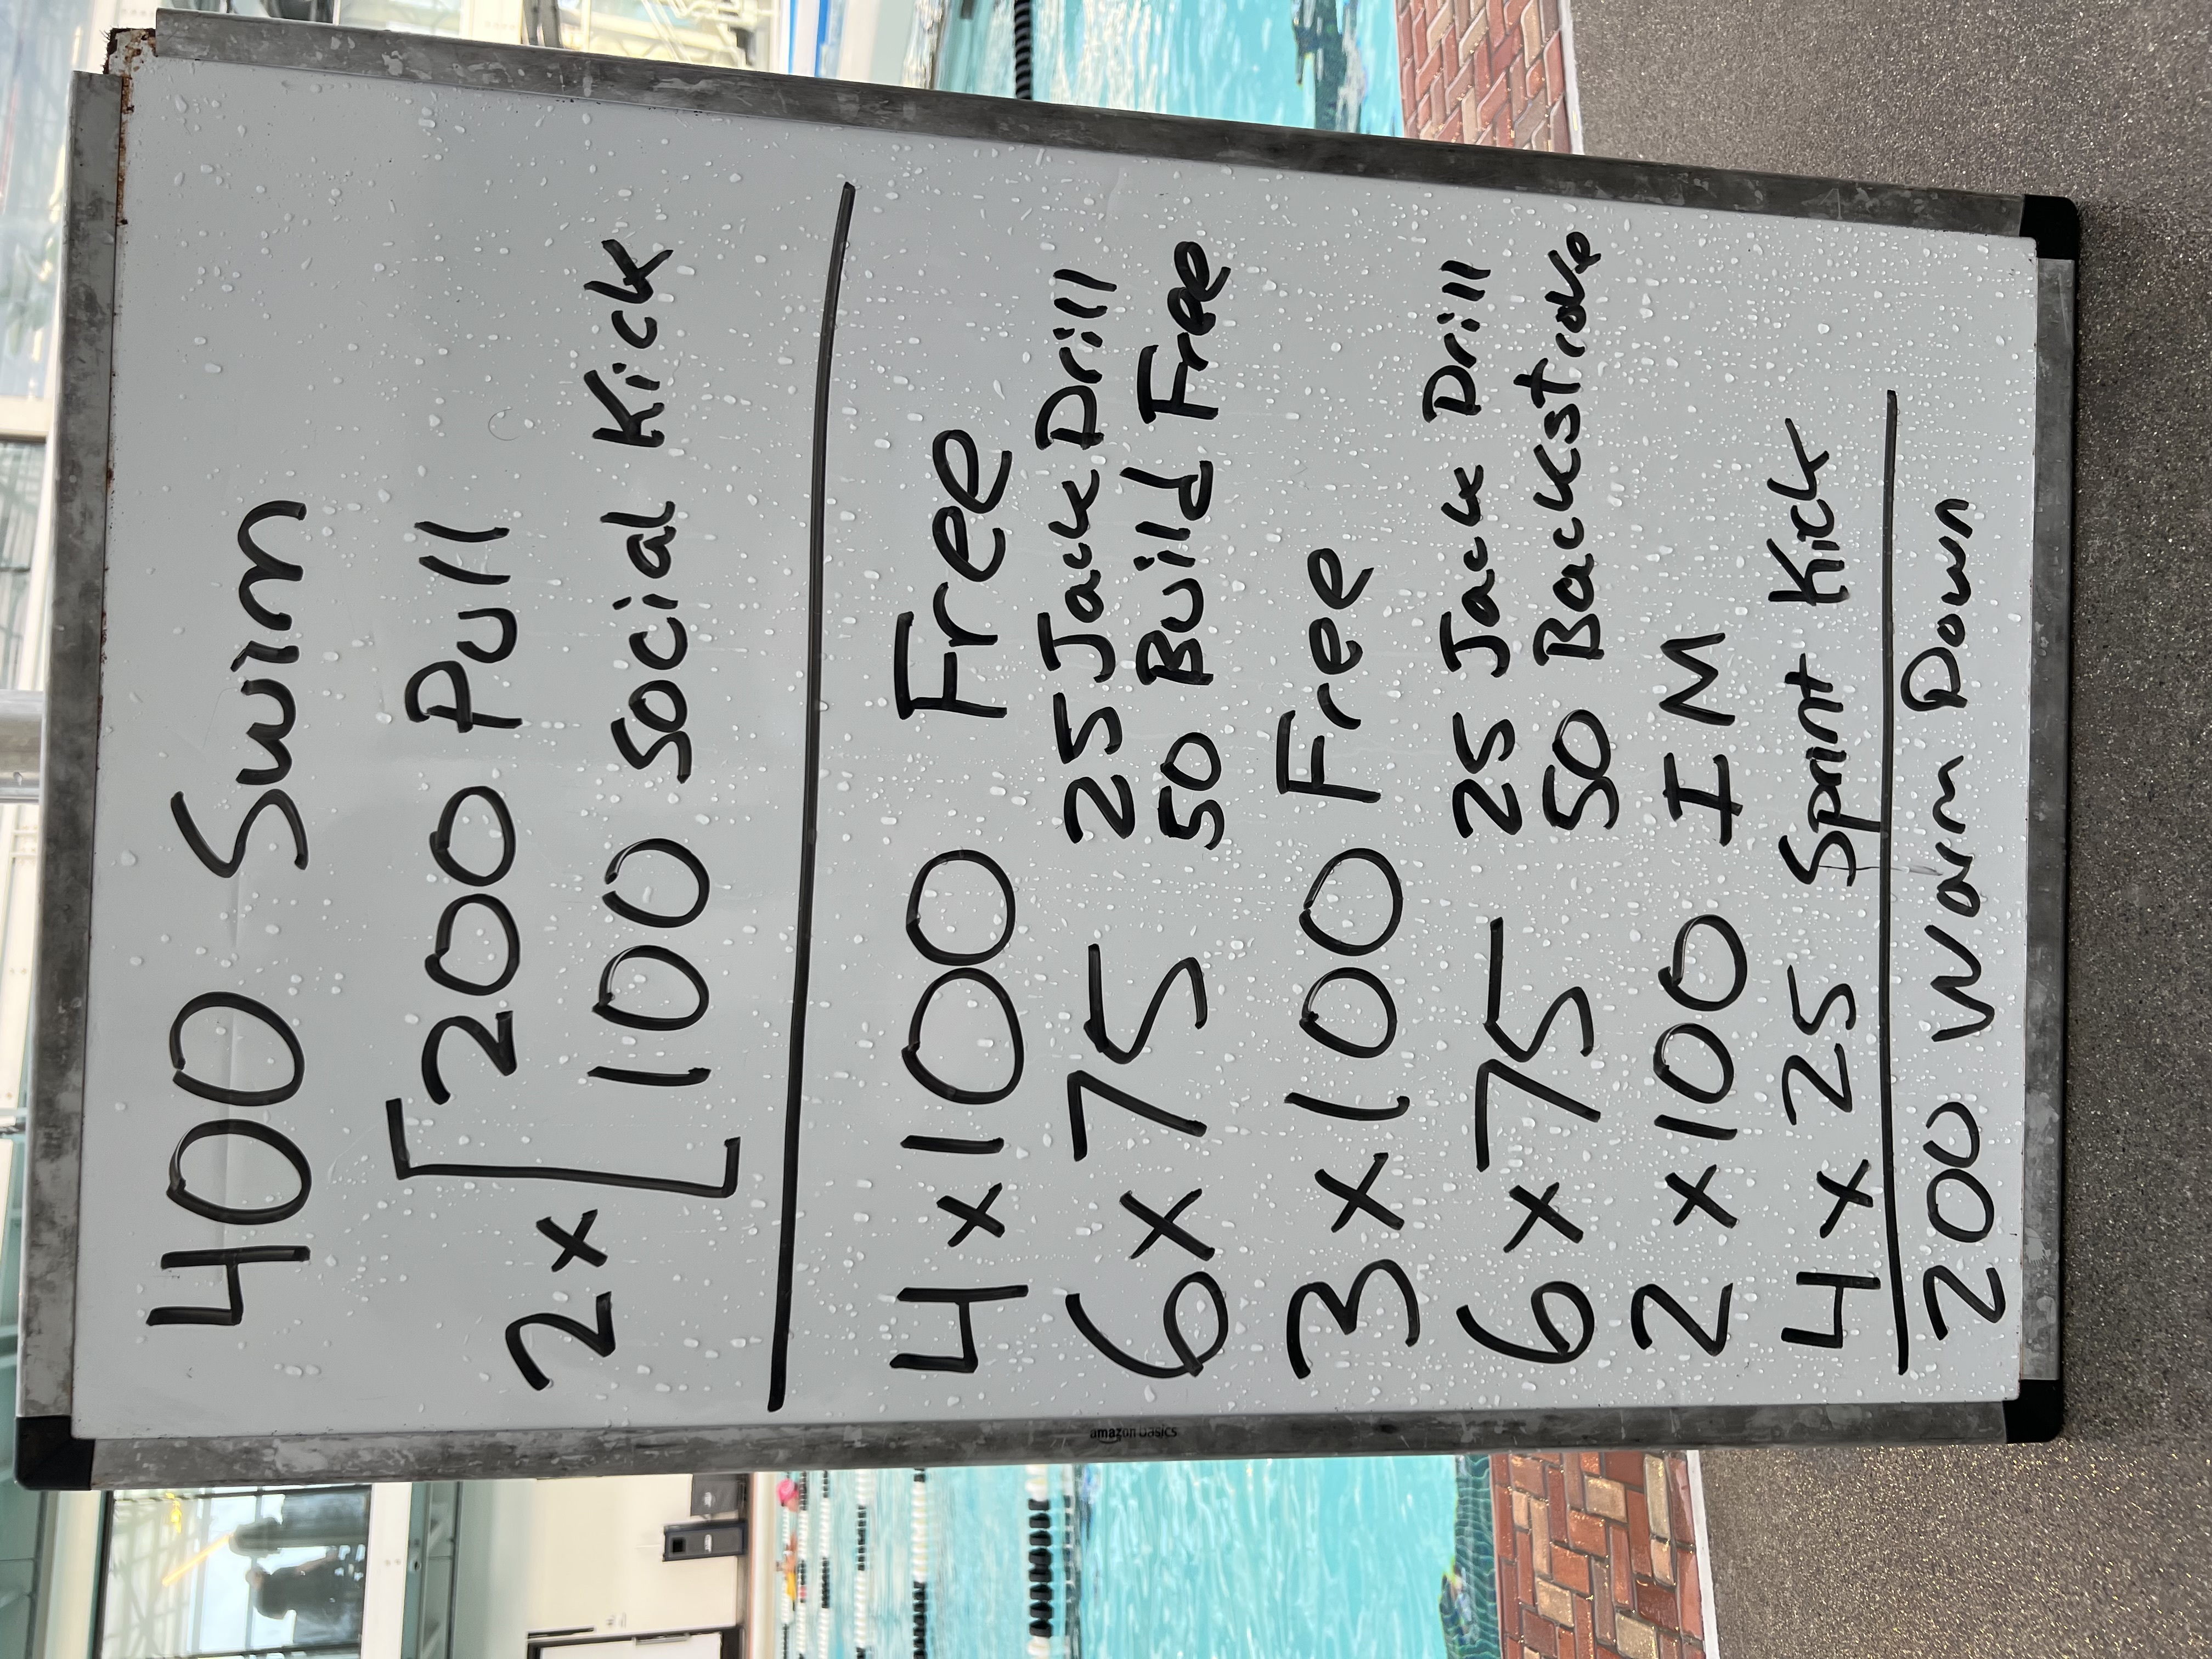 400 Swim
2x [200 Pull
100 Social Kick
4x100 Free
6x75 25 Jack Drill
50 Build Free
3x100 Free
6x75 25 Jack Drill
50 Backstroke
2x100 IM
4x25 Sprint Kick
200 Warm Down
amazon basics